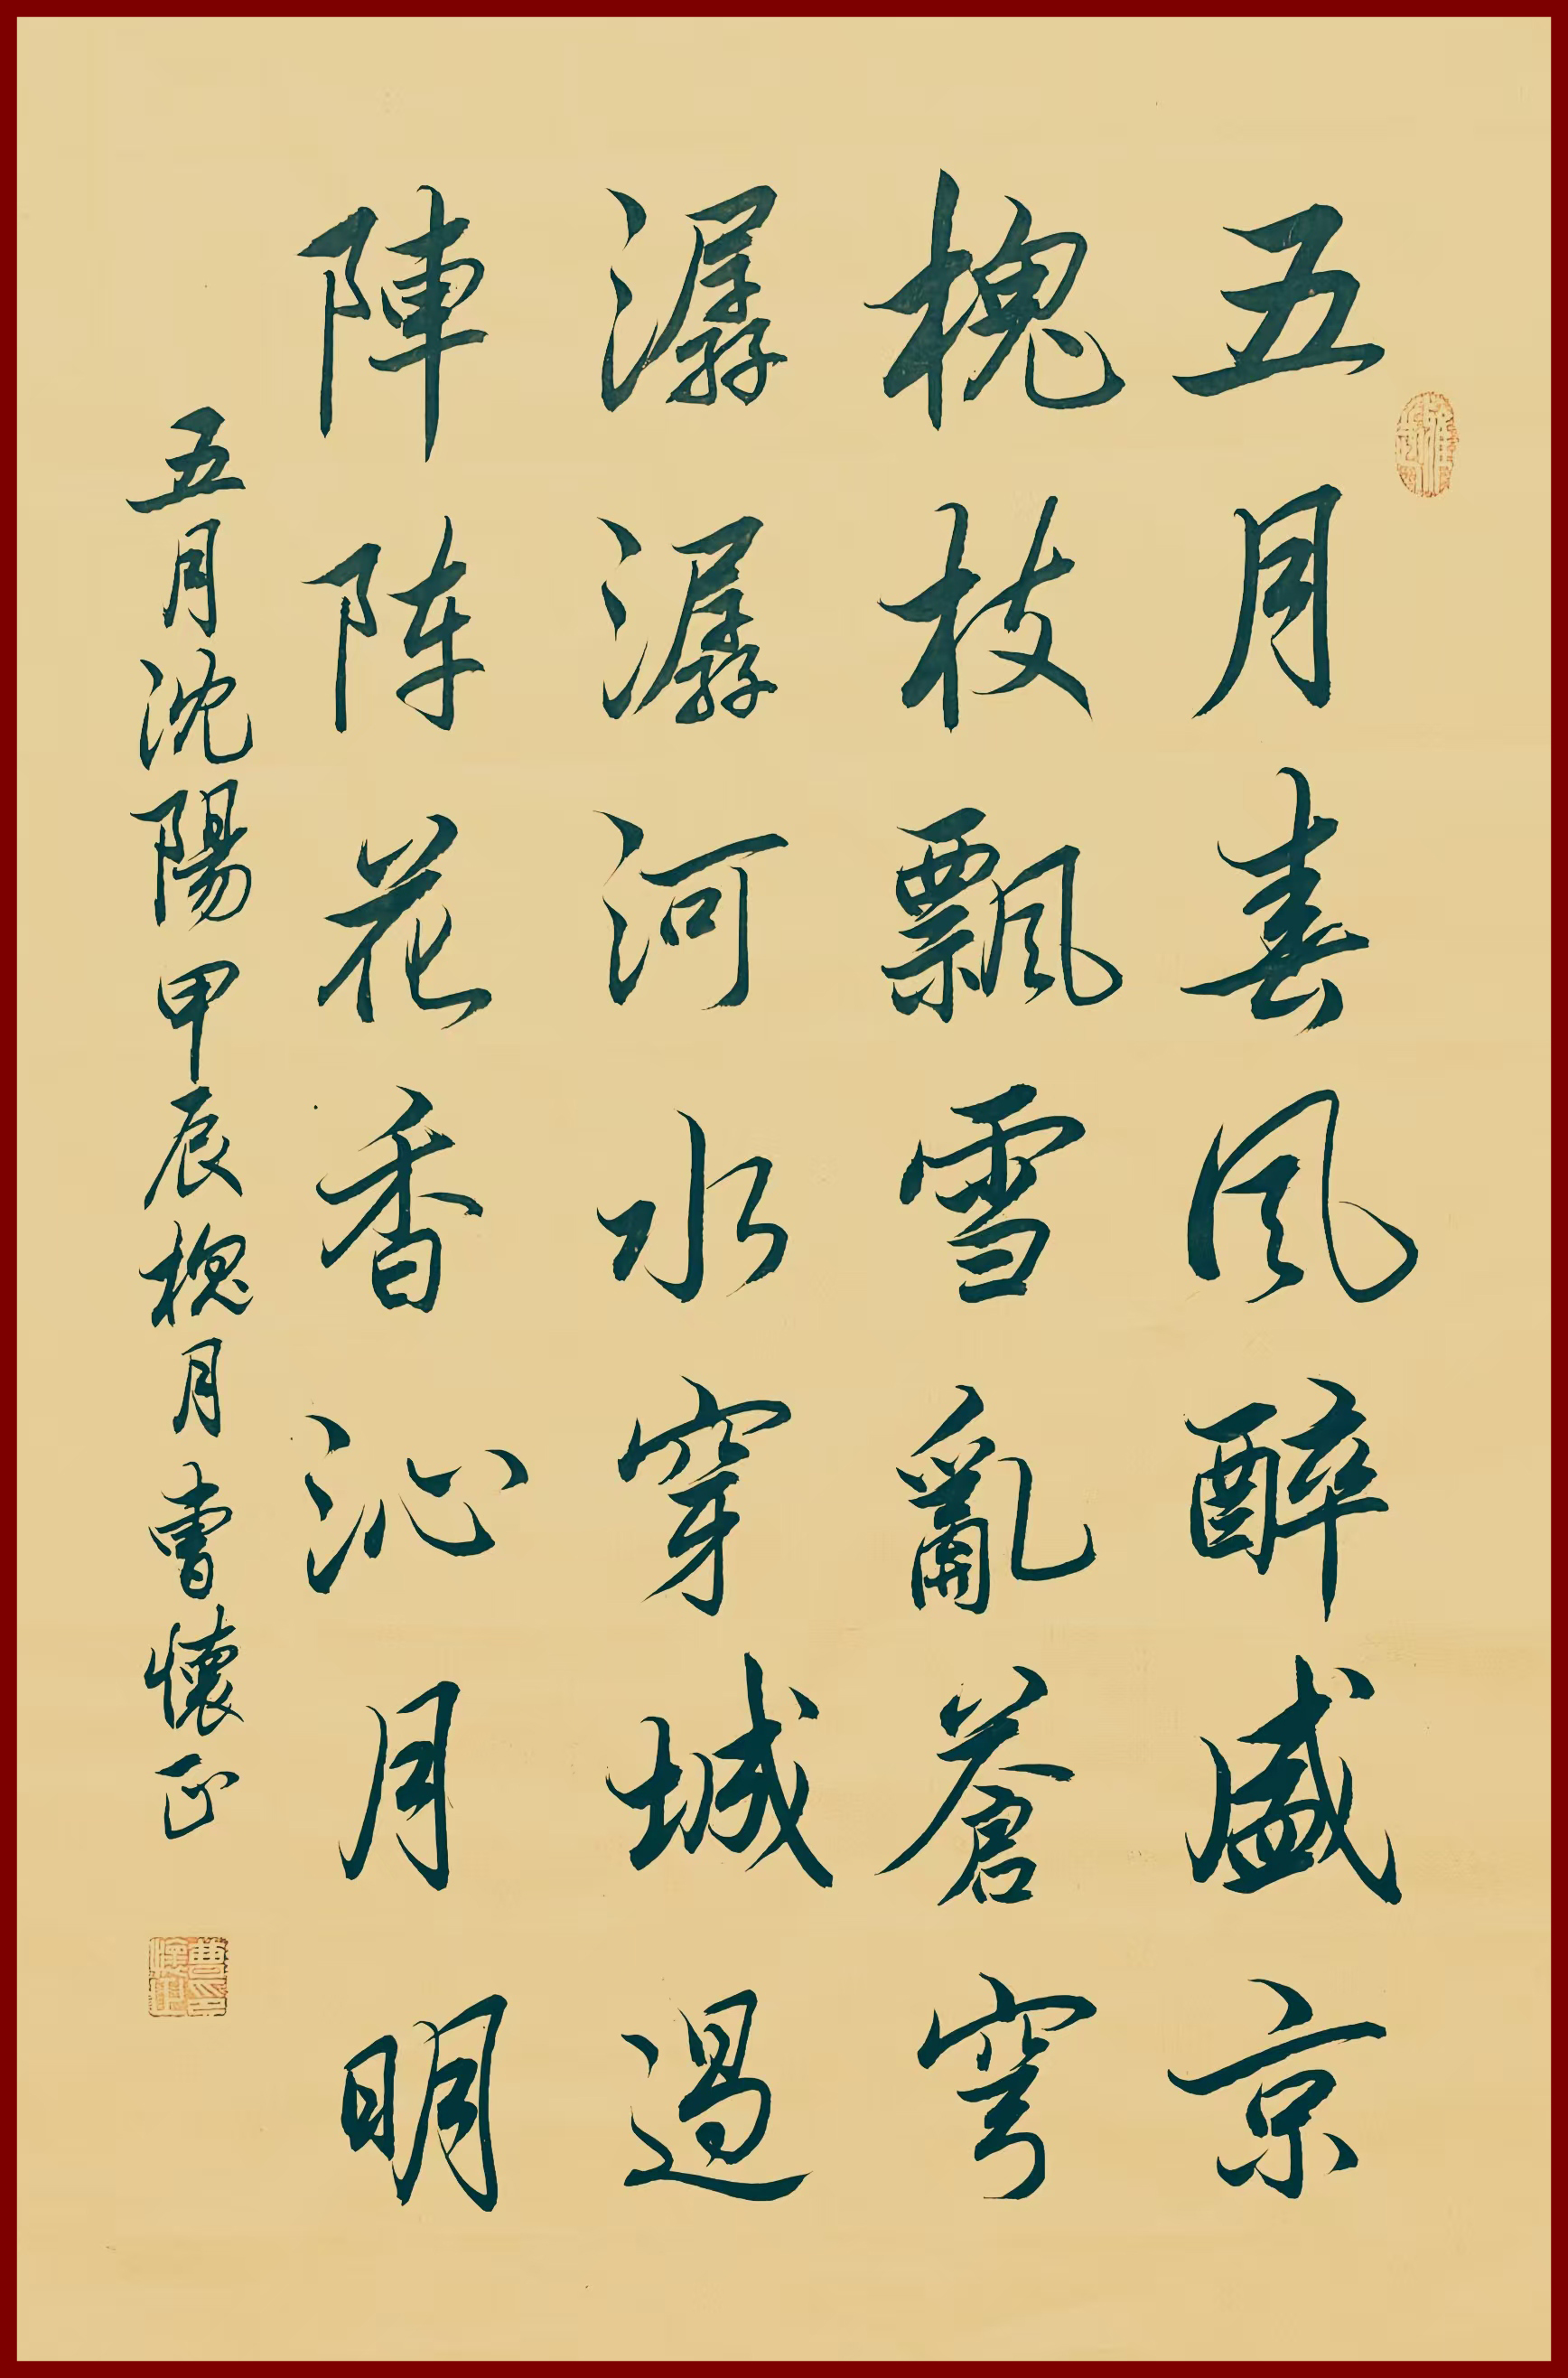 五月春风醉盛京
槐枝飘雪亂蒼穹
潺潺河水穿城過
陣阵花香沁月明
五月沈陽甲辰槐月曹懷正
曹印懷正